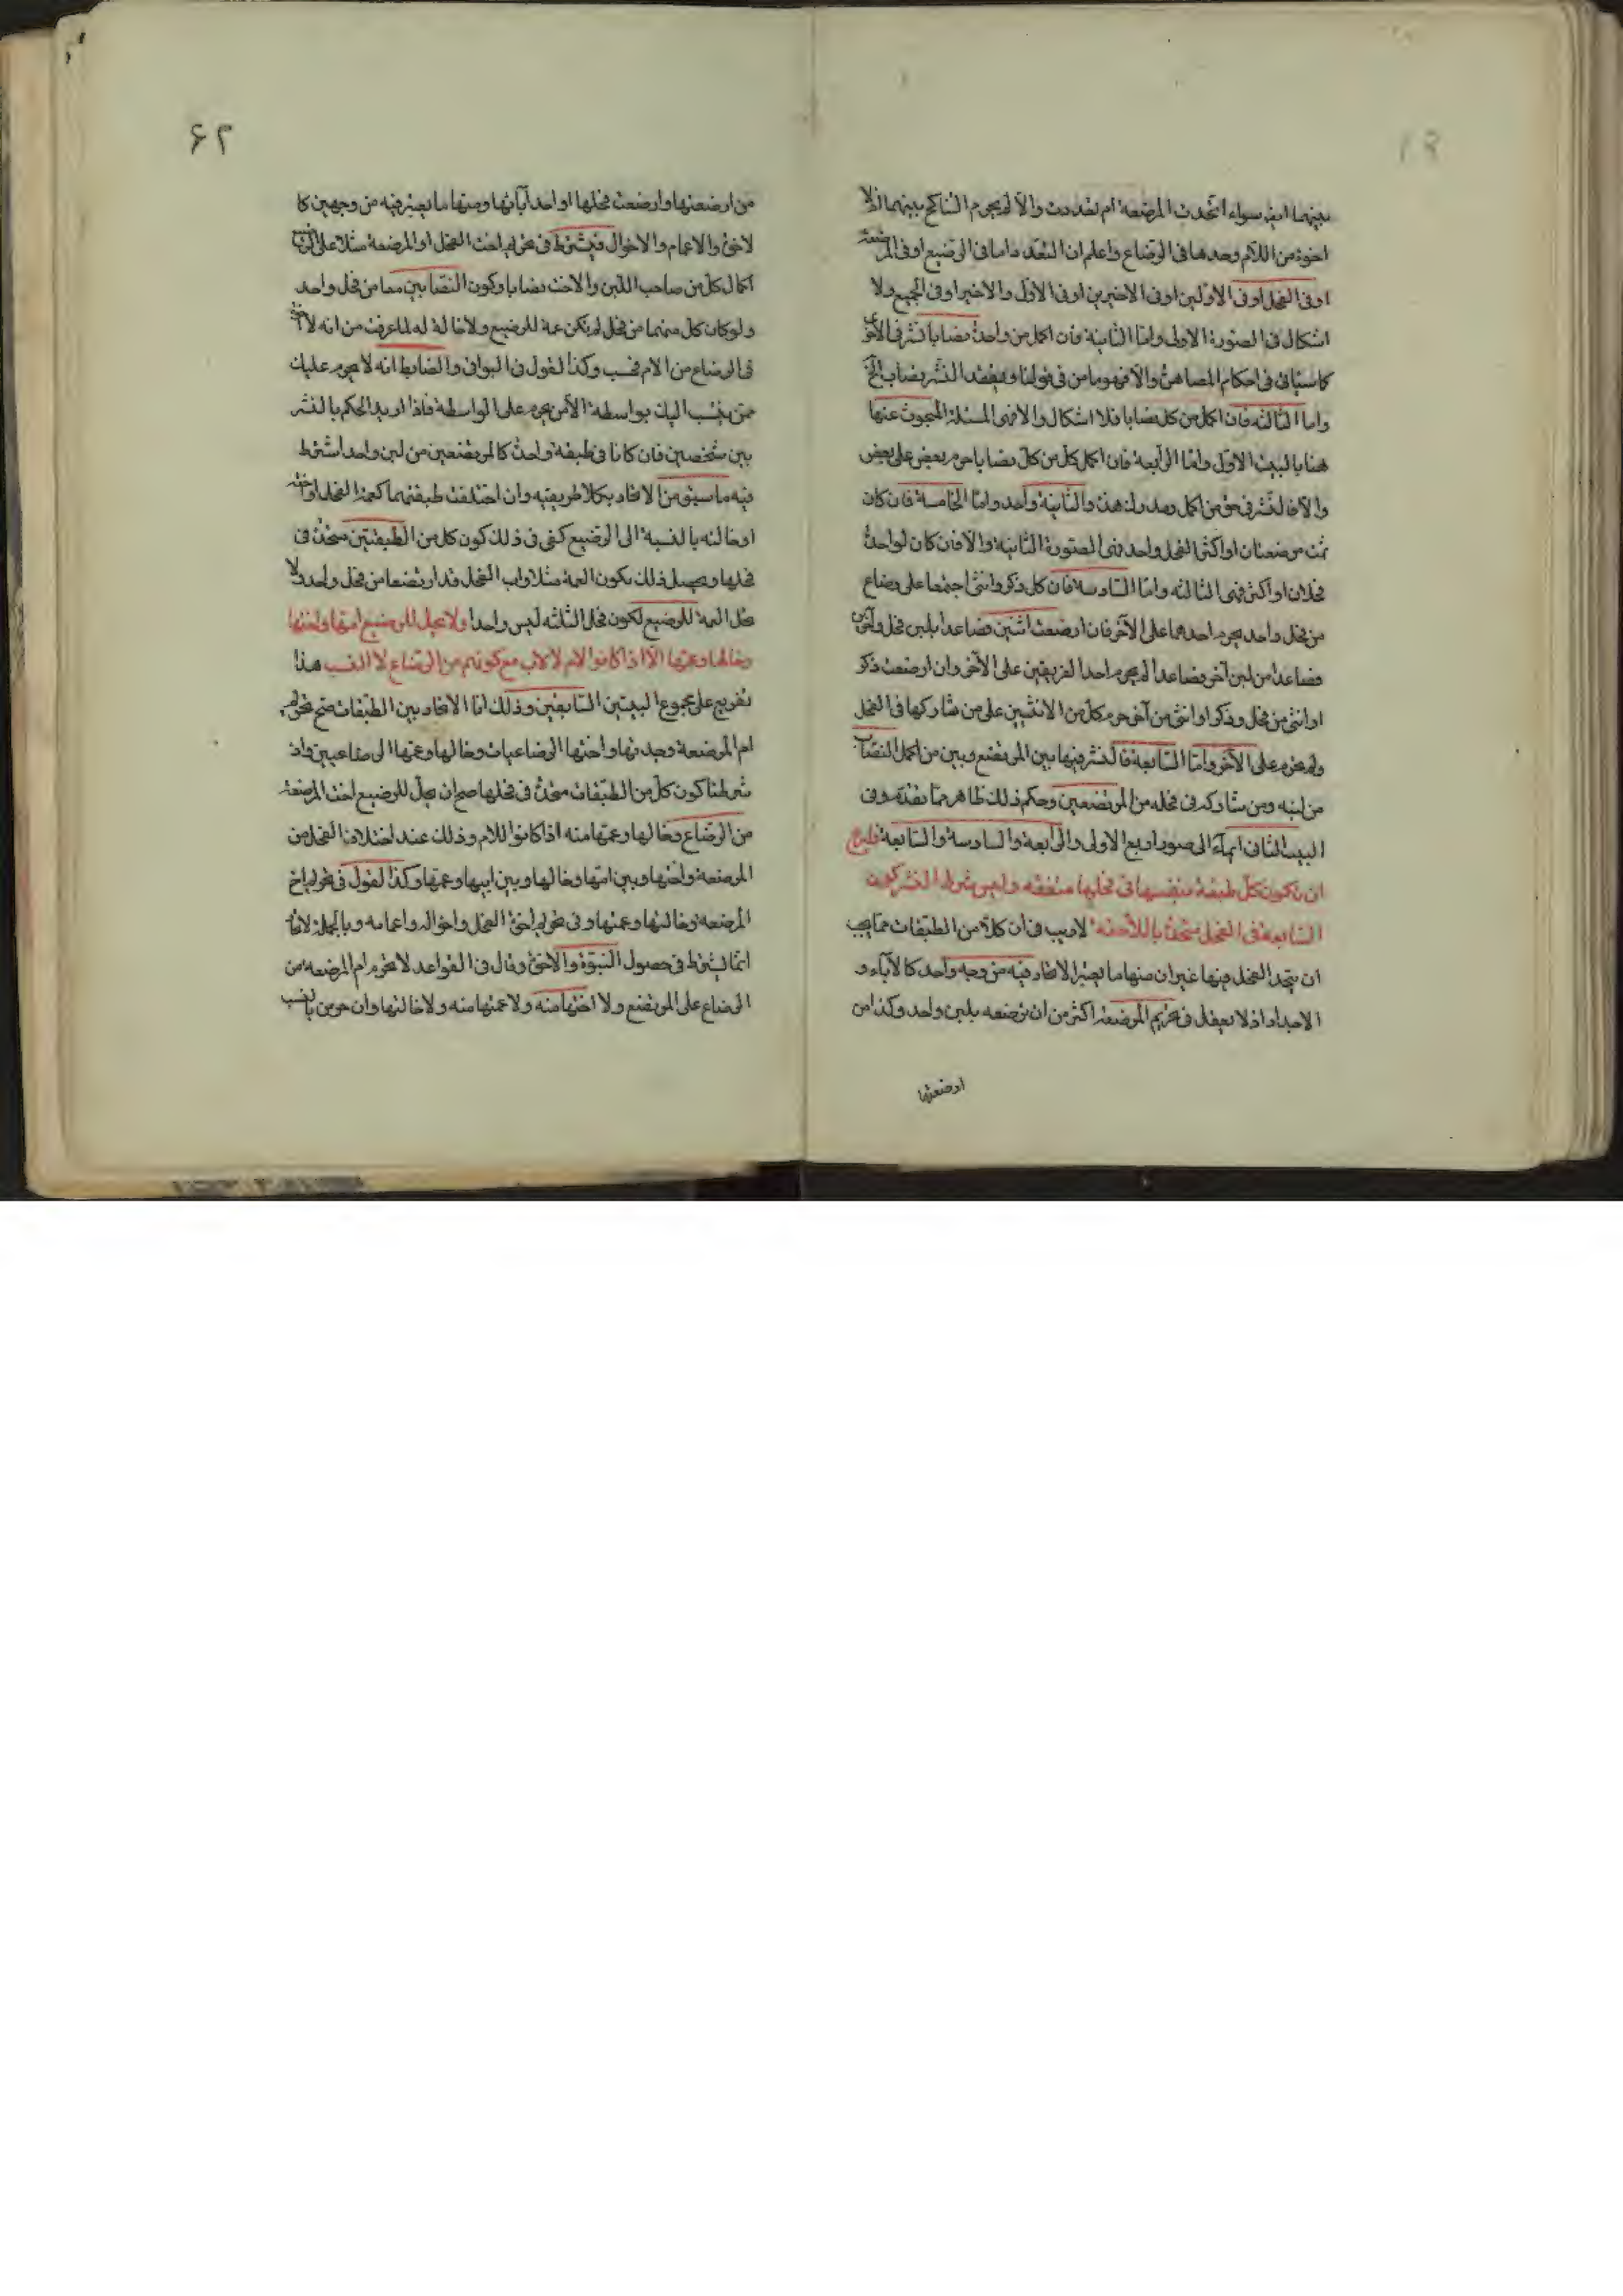 ٦١
بينهما ايض سواء اتحدت المرضعة ام تعددت والا لم يحرم التناكح بينهما اذ لا
اخوة من الام وحدها في الرضاع واعلم ان التعدد اما في الرضيع او في المرضعة
او في الفحل او في الاولين او في الاخيرين او في الاول والاخير او في الجميع ولا
اشكال في الصورة الاولى واما الثانية فان اكمل من واحدة نصابا نشر في الاخرى
كما سيأتي في احكام المصاهرة والا فهو ما من في قولنا ويفقد النشر نصاب
واما الثالثة فان اكمل من كل نصابا فلا اشكال والا فهي المسئلة المبحوث عنها
هنا بالبيت الاول واما الرابعة فان اكمل كل من كل نصابا حرم بعض على بعض
والا فالنشر في حق من اكمل وهذه والثانية واحد واما الخامسة فان كان
ثمت مرضعتان او اكثر والفحل واحد فهي الصورة الثانية والا فان كان لواحدة
فحلان او اكثر فهي الثالثة واما السادسة فان كل ذكر وانثى اجتمعا على رضاع
من فحل واحد يحرم احدهما على الآخر فان ارضعت اثنين فصاعدا بلبن فحل وآخرين
فصاعدا من لبن آخر فصاعدا لم يحرم احد الفريقين على الآخر وان ارضعت ذكرا
او انثى من فحل وذكرا او انثى من آخر حرم كل من الانثيين على من شاركها في الفحل
ولم تحرم على الآخر واما السابعة فالنشر فيها بين المرتضع وبين من اكمل النصاب
من لبنه وبين مشاركه في فحله من المرتضعين وحكم ذلك ظاهر مما تقدم وفي
البيت الثاني ايماء الى صور اربع الاولى والرابعة والسادسة والسابعة
ان تكون كل طبقة بنفسها في فحلها متفقه وليس شرط النشر كون
السابعة في الفحل متحدة باللاحقة لا ريب في ان كلا من الطبقات مما يجب
ان يتحد الفحل فيها غير ان منها ما يعتبر الاتحاد فيه من وجه واحد كالآباء و
الاجداد اذ لا يعقل في تحريم المرضعة اكثر من ان ترضعه بلبن واحد وكذا من
ارضعتها
٦٢
من ارضعتها وارضعت فحلها او احد آبائها ومنها ما يعتبر فيه من وجهين كا
لاخوة والاعمام والاخوال فيشترط في تحريم اخت الفحل او المرضعة مثلا على
اكمال كل من صاحب اللبن والاخت نصابا وكون النصابين معا من فحل واحد
ولو كان كل منهما من فحل لم تكن عمة للرضيع ولا خالة له لما عرفت من انه لا اخوة
في الرضاع من الام فحسب وكذا القول في البواقي والضابط انه لا يحرم عليك
ممن ينتسب اليك بواسطة الا من يحرم على الواسطة فاذا اريد الحكم بالنشر
بين شخصين فان كانا في طبقة واحدة كالمرتضعين من لبن واحد اشترط
فيه ما سبق من الاتحاد بكلا طريقيه وان اختلفت طبقتهما كعمة الفحل او اخته
او خالته بالنسبة الى الرضيع كفى في ذلك كون كل من الطبقتين متحدة في
فحلها ويحصل ذلك بكون العمة مثلا واب الفحل قد ارتضعا من فحل واحد ولا
تحل العمة للرضيع لكون فحل الثلثة ليس واحدا ولا تحل للرضيع امها واختها
وخالها وعمتها الا اذا كانوا الام لا لاب مع كونهم من الرضاع لا النسب هذا
تفريع على مجموع البيتين السابقين وذلك اما الاتحاد بين الطبقات صح تحريم
ام المرضعة وجدتها واختها الرضاعيات وخالها وعمتها الرضاعيين واذ
شرطنا كون كل من الطبقات متحدة في فحلها صح ان تحل للرضيع اخت المرضعة
من الرضاع وخالها وعمتها منه اذا كانوا للام وذلك عند اختلاف الفحل من
المرضعة واختها وبين امها وخالها وبين ابيها وعمتها وكذا القول في تحريم اخ
المرضعة وخالتها وعمتها وفي تحريم اخوة الفحل واخواله واعمامه وبالجملة
انما يشترط في حصول البنوة والاخوة وقال في القواعد لا تحرم ام المرضعة من
الرضاع على المرتضع ولا اختها منه ولا عمتها منه ولا خالتها وان حرمن بالنسب